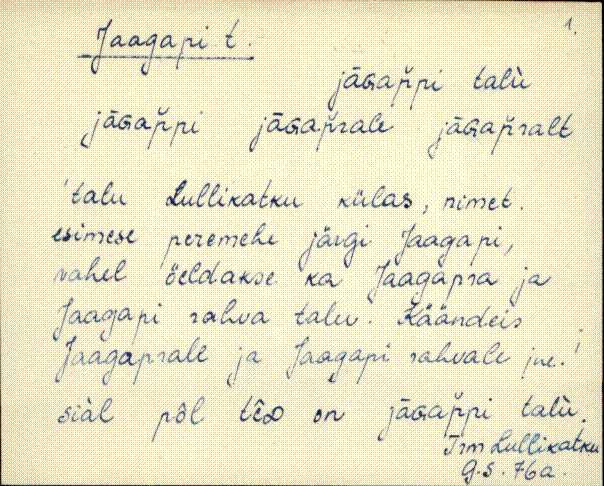 1.
Jaagapi t.
jāɢap̆pi talù
jāɢap̆pi jāɢap̆rale jāɢap̆ralt
'talu Lullikatku külas, nimet.
esimese peremehe järgi Jaagapi,
vahel öeldakse ka Jaagapra ja
Jaagapi rahva talu. Käändeis
Jaagaprale ja Jaagapi rahvale jne.'
siàl pôl on jāɢap̆pi talù.
Trm Lullikatku
G.S. 76a.